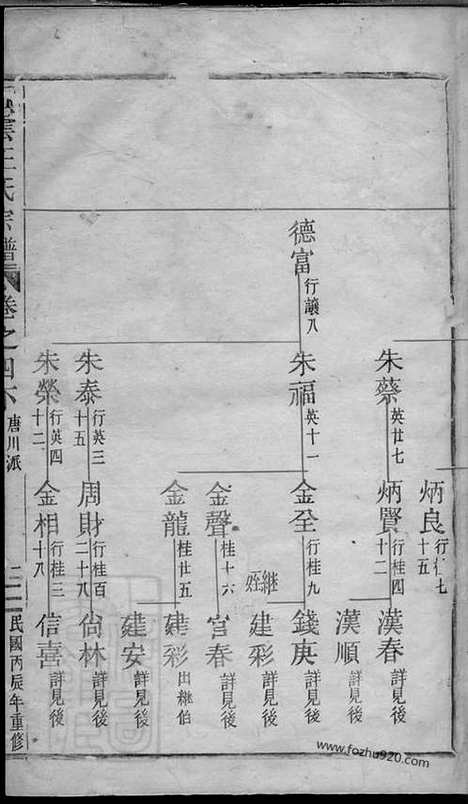 炳良 行仁七十五
朱蔡 英廿七
炳賢 行桂四十二
漢春 詳見後
漢順 詳見後
德富 行讓八
朱福 英十一
金全 行桂九
錢庚 詳見後
繼姪
建彩 詳見後
金聲 桂十六
宮春 詳見後
金龍 桂廿五
建彩 出繼伯
建安 詳見後
朱泰 行英三十五
周財 行桂百二十八
尙林 詳見後
朱榮 行英四十二
金相 行桂三十八
信喜 詳見後
王氏宗譜 卷之四六 唐川派 民國丙辰年重修
www.fozhu920.com